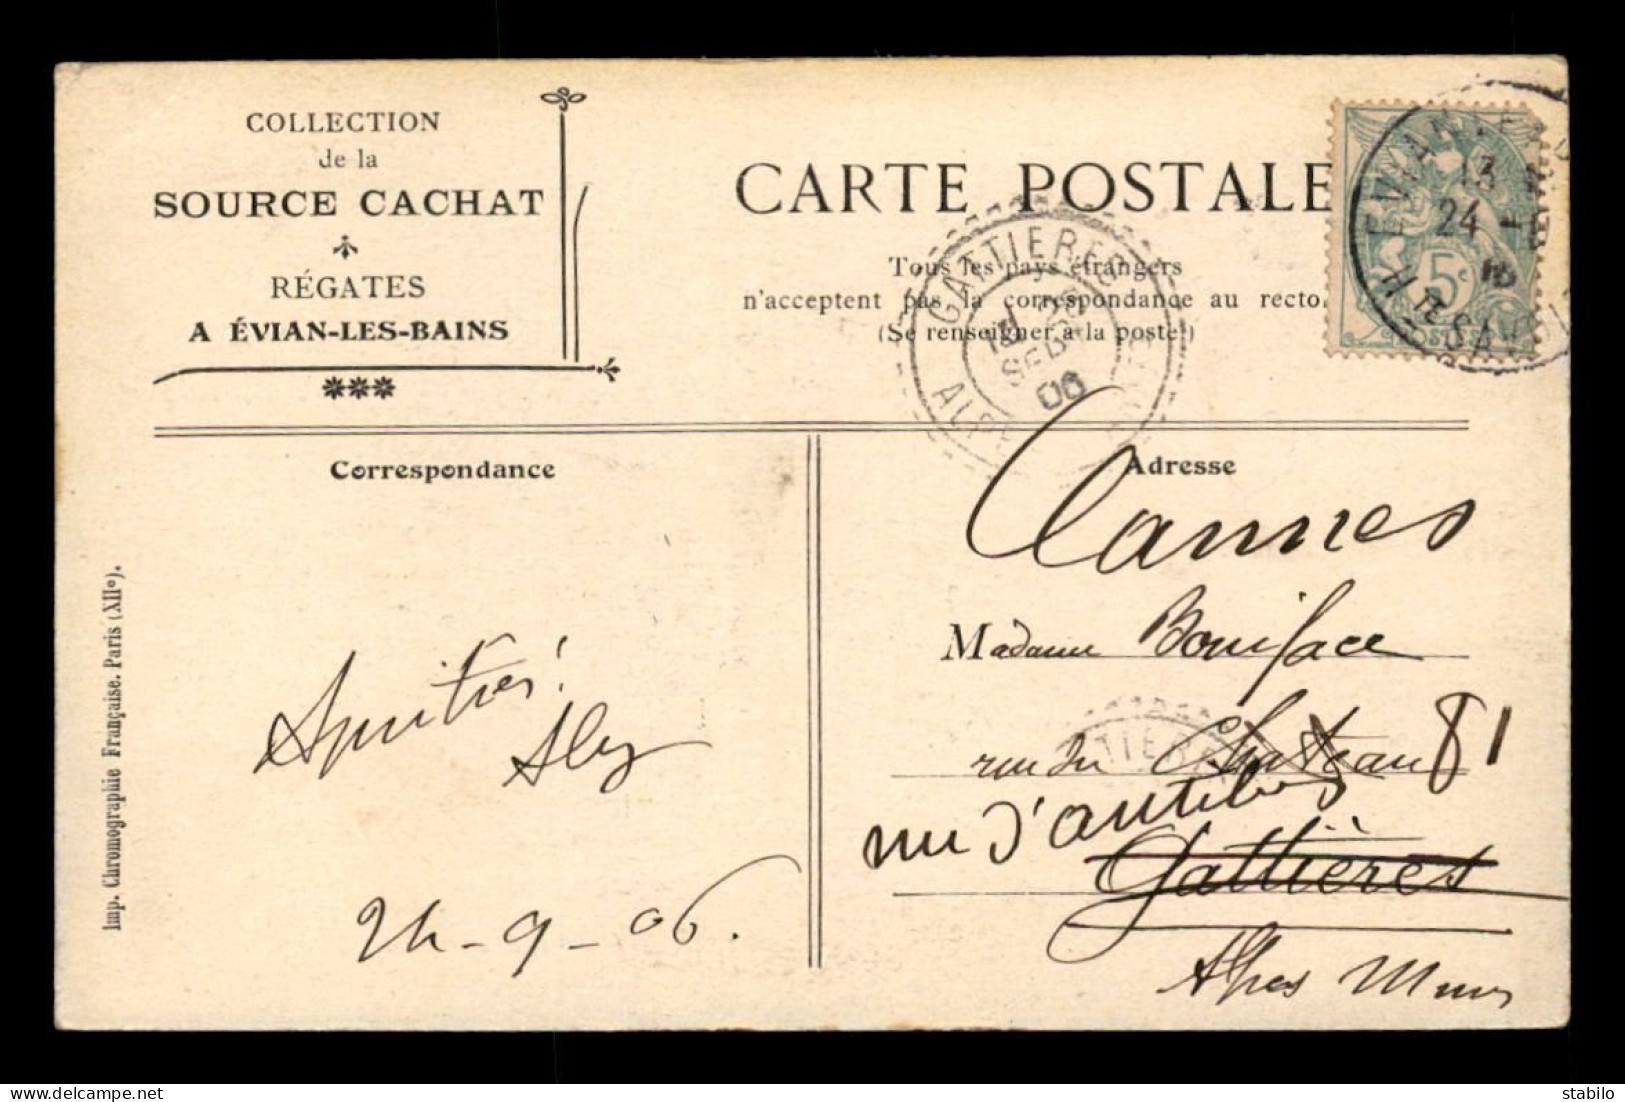 COLLECTION
de la
SOURCE CACHAT
RÉGATES
A ÉVIAN-LES-BAINS
CARTE POSTALE
Tous les pays étrangers
n'acceptent pas la correspondance au recto.
(Se renseigner à la poste)
GATTIERES
SEPT
06
ALP
EVIAN
13
24
Hte SAVOIE
5c
POSTES
Correspondance
Adresse
Cannes
Madame Boniface
rue du Chateau 81
rue d'antibes
Gattières
Alpes Mmes
24-9-06.
Imp. Chromographie Française. Paris (XIIe).
stabilo